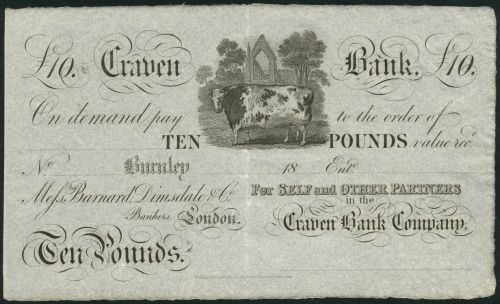 £10. Craven Bank. £10.
On demand pay to the order of
TEN POUNDS value recd.
No Burnley 18 Entd.
Messrs. Barnard Dimsdale & Co. For SELF and OTHER PARTNERS
Bankers, London. in the
Ten Pounds. Craven Bank Company.